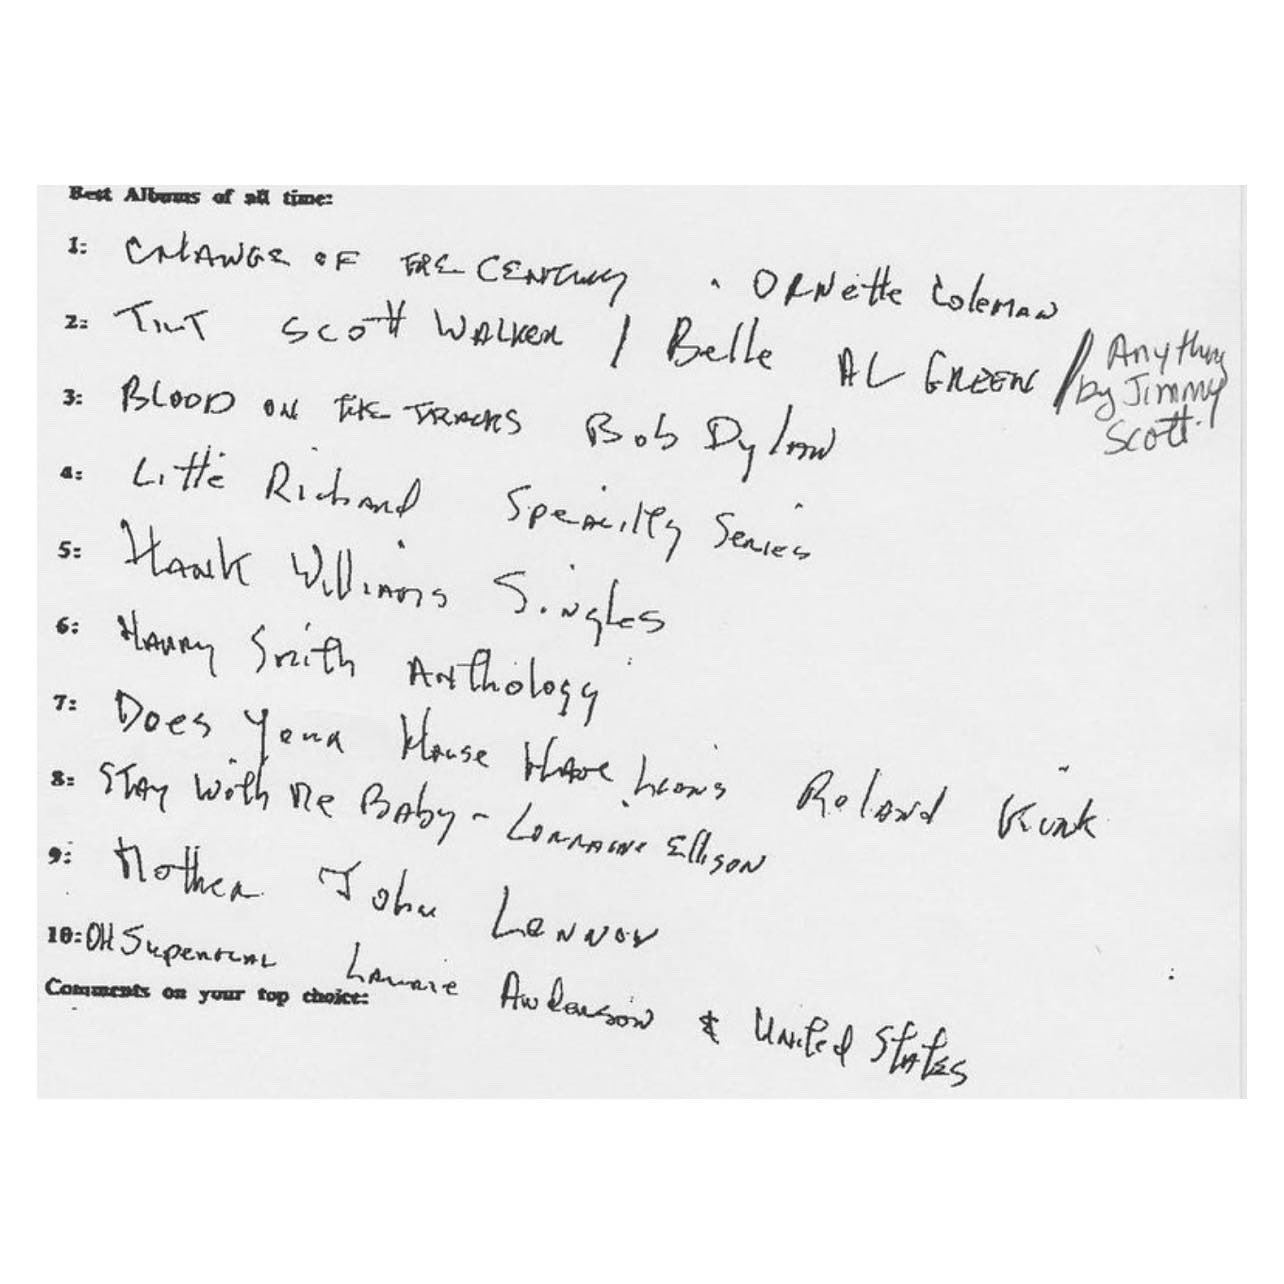 Best Albums of all time:
1: CHANGE OF THE CENTURY . ORNette Coleman
2: TILT SCOTT WALKER / Belle AL GREEN / Anything by Jimmy Scott.
3: BLOOD ON THE TRACKS Bob Dylan
4: Little Richard Speciality Series
5: HANK Williams Singles
6: Harry Smith Anthology
7: Does Your House Have Lions Roland Kirk
8: STAY With Me BABy - Lorraine Ellison
9: Mother John Lennon
10: OH Superman Laurie Anderson & United States
Comments on your top choice: